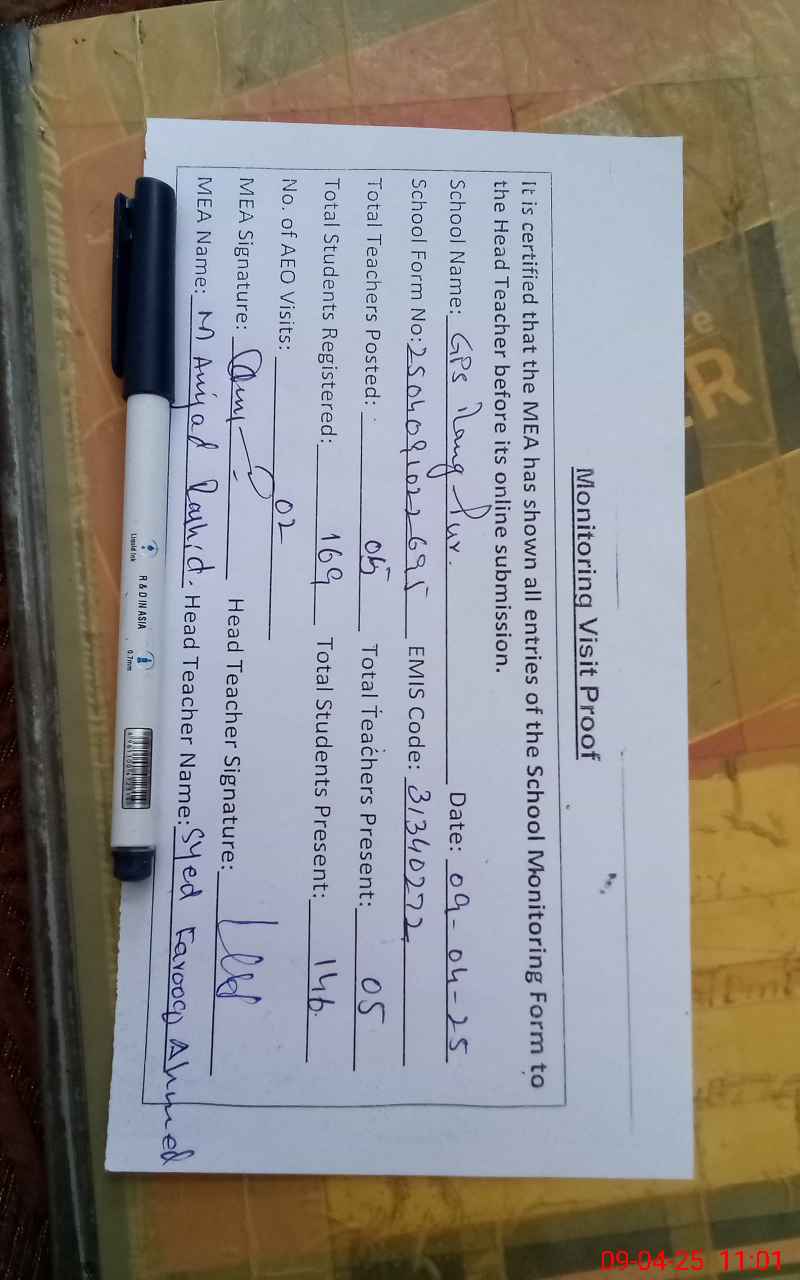 Monitoring Visit Proof
It is certified that the MEA has shown all entries of the School Monitoring Form to
the Head Teacher before its online submission.
School Name: GPS Rang Pur. Date: 09-04-25
School Form No: 2504091022695 EMIS Code: 31340272
Total Teachers Posted: 05 Total Teachers Present: 05
Total Students Registered: 169 Total Students Present: 146
No. of AEO Visits: 02
MEA Signature: Head Teacher Signature:
MEA Name: M Amjad Rashid. Head Teacher Name: Syed Farooq Ahmed
Liquid Ink R & D IN ASIA 0.7mm
09-04-25 11:01